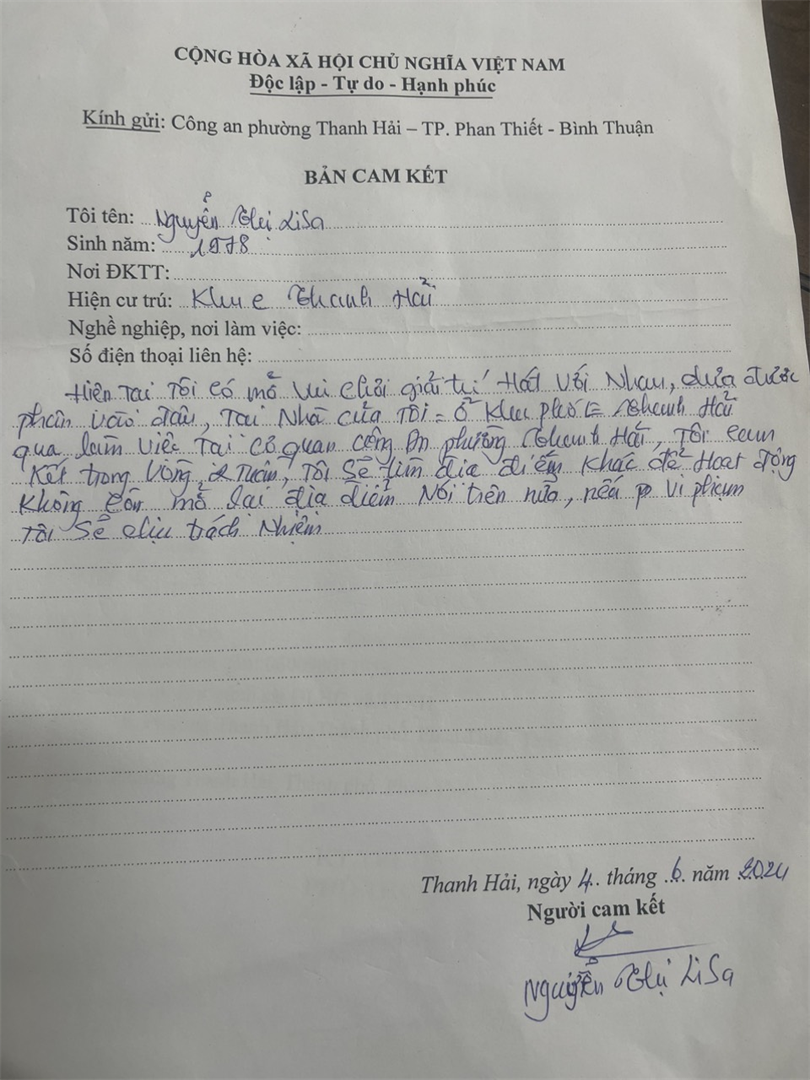 CỘNG HÒA XÃ HỘI CHỦ NGHĨA VIỆT NAM
Độc lập - Tự do - Hạnh phúc
Kính gửi: Công an phường Thanh Hải – TP. Phan Thiết - Bình Thuận
BẢN CAM KẾT
Tôi tên: Nguyễn Thị LiSa
Sinh năm: 1978
Nơi ĐKTT:
Hiện cư trú: Khu e Thanh Hải
Nghề nghiệp, nơi làm việc:
Số điện thoại liên hệ:
Hiện Tại Tôi có mở vui chơi giải trí Hát Với Nhau, dựa được
phân vào đâu, Tại Nhà của Tôi = ở Khu phố E Thanh Hải
qua làm việc Tại cơ quan công An phường Thanh Hải, Tôi cam
Kết trong Vòng 2 Tuần, Tôi Sẽ tìm địa điểm Khác để Hoạt động
Không còn mở lại địa điểm Nói trên nữa, nếu vi phạm
Tôi Sẽ chịu trách Nhiệm
Thanh Hải, ngày 4 tháng 6 năm 2024
Người cam kết
Nguyễn Thị LiSa